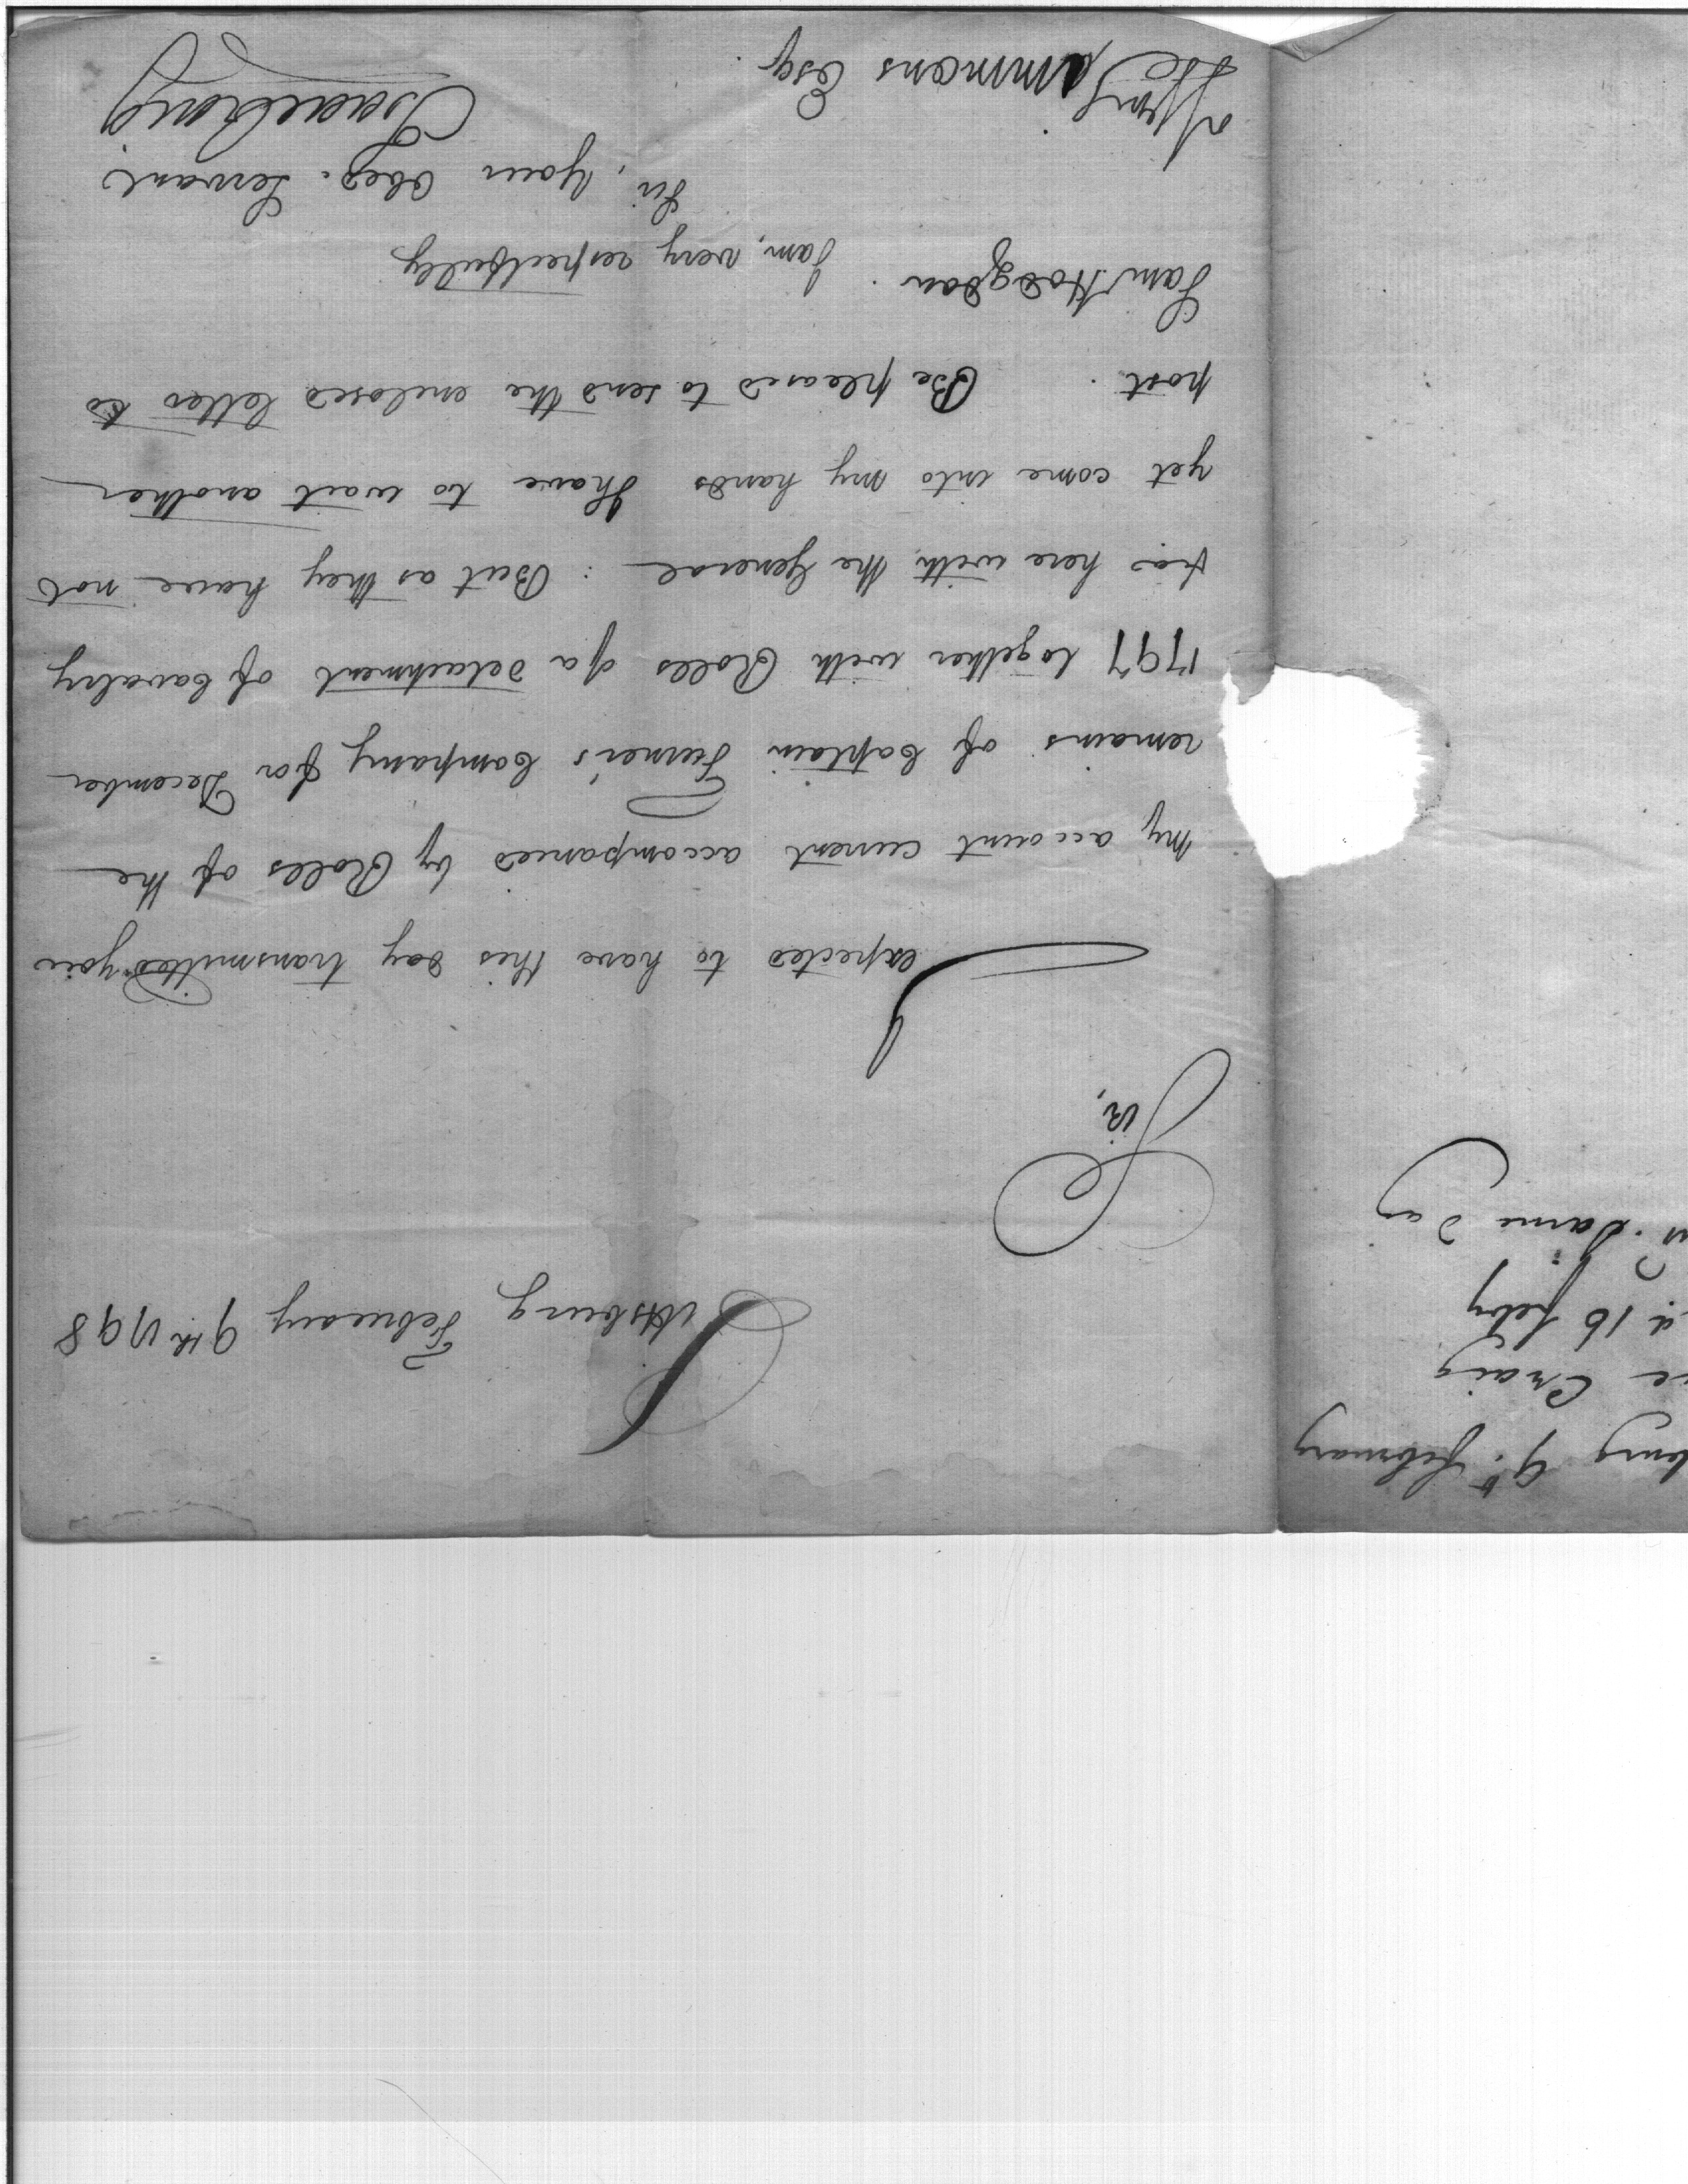 Pittsburg February 9th 1798
Sir,
I expected to have this day transmitted you
my account current accompanied by Rolls of the
remains of Captain Turner's Company for December
1797 together with Rolls of a detachment of Cavalry
here with the General : But as they have not
yet come into my hands I have to wait another
post . Be pleased to send the enclosed letter to
Sam Hodgdon .
I am, very respectfully
Sir, Your Obed. Servant
Isaac Craig
Simmons Esq.
burg 9th February
Craig
16 feby
same day